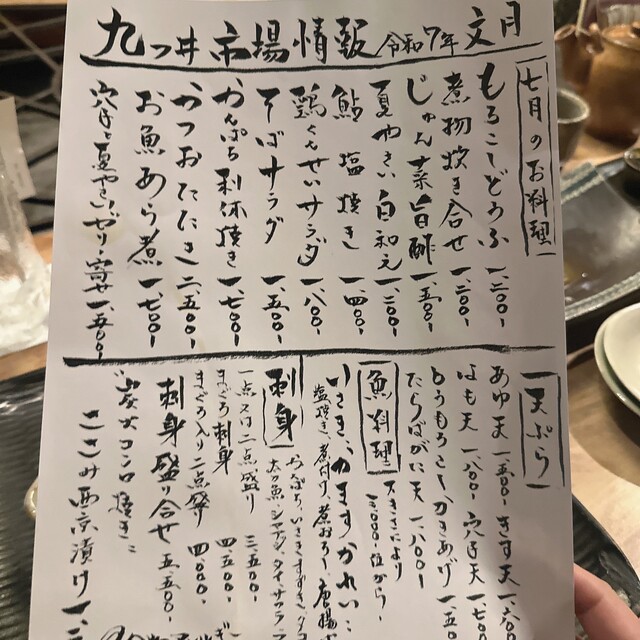 九つ井 市場情報 令和7年 文月
七月のお料理
もろこしどうふ 一、二〇〇-
煮物炊き合せ 一、二〇〇-
じゅん菜旨酢 一、五〇〇-
夏やさい白和え 一、二〇〇-
鮎塩焼き 一、四〇〇-
鶏くんせいサラダ 一、八〇〇-
そばサラダ 一、五〇〇-
かんぱち利休焼き 一、七〇〇-
かつおたたき 二、五〇〇-
お魚あら煮 一、七〇〇-
穴子と夏やさいゼリー寄せ 一、五〇〇-
天ぷら
あゆ天 一、五〇〇- きす天 一、六〇
はも天 一、八〇〇- 穴子天 一、七〇〇
とうもろこしかきあげ 一、五〇
たらばがに天 一、八〇〇-
魚料理
大きさにより
三、〇〇〇-位から-
いさき、かます、かれい…
塩焼き、煮付け、煮おろし、唐揚
刺身
かんぱち、いさき、すずき、タコ
太刀魚、シマアジ、タイ、サワラ
一点又は二点盛り 三、五〇〇-
まぐろ刺身 四、五〇〇-
まぐろ入り二点盛り 四、〇〇〇-
刺身盛り合せ 五、五〇〇-
"炭火コンロ焼き"
ささみ西京漬け 一、